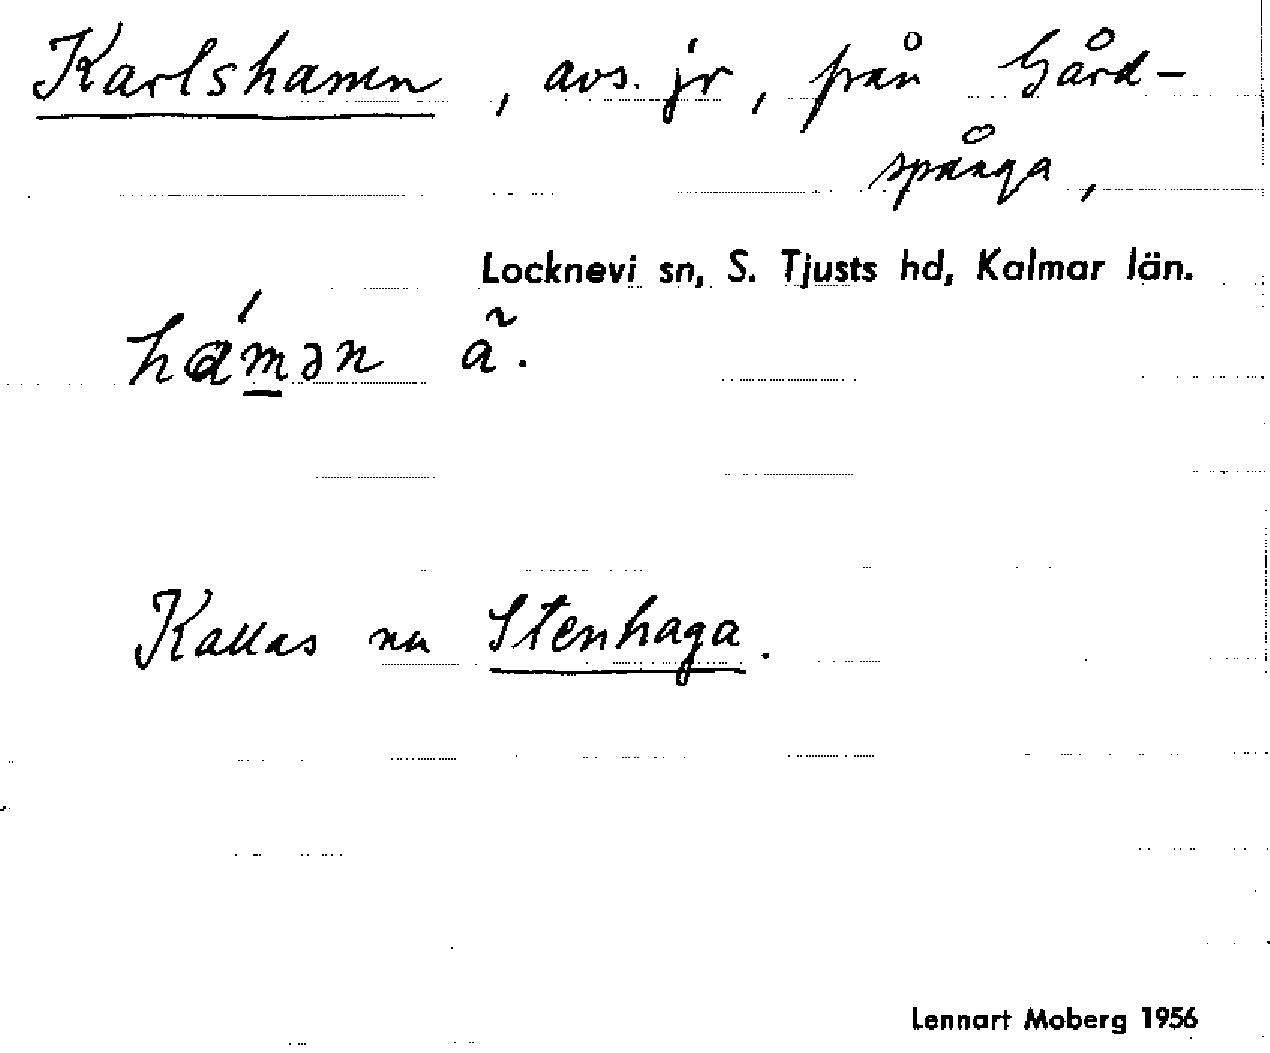 Karlshamn, avs. jr, från Gård-
spånga,
Locknevi sn, S. Tjusts hd, Kalmar län.
hám̲ən ã.
Kallas nu Stenhaga.
Lennart Moberg 1956